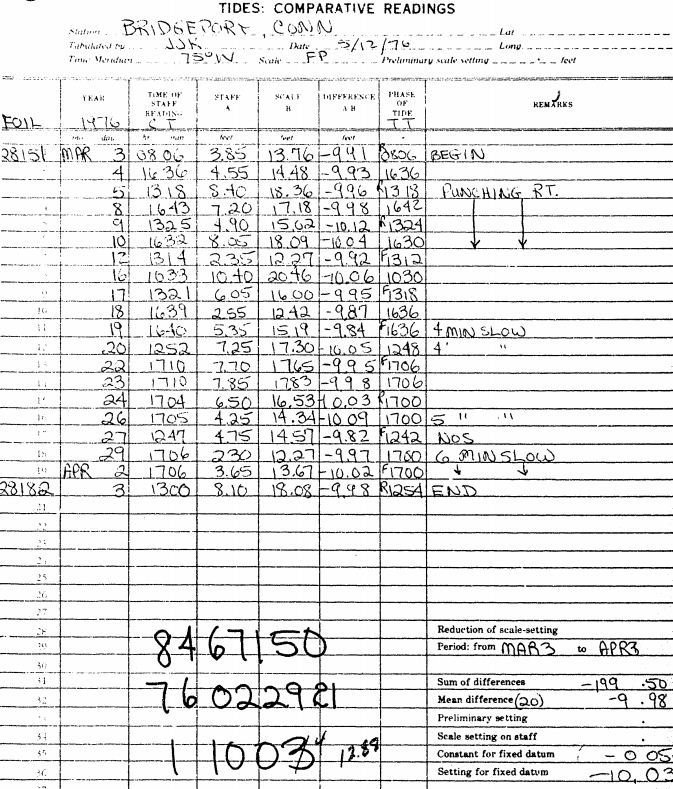 TIDES: COMPARATIVE READINGS
Station BRIDGEPORT, CONN Lat
Tabulated by JJK Date 5/12/76 Long.
Time Meridian 75° W Scale FP Preliminary scale setting feet
YEAR TIME OF STAFF READING STAFF A SCALE B DIFFERENCE A-B PHASE OF TIDE REMARKS
FOIL 1976 CT TT
mo. day hr. min. feet feet feet
28151 MAR 3 0806 3.85 13.76 -9.91 R0806 BEGIN
4 1636 4.55 14.48 -9.93 1636
5 1318 8.40 18.36 -9.96 R1318 PUNCHING RT.
8 1643 7.20 17.18 -9.98 1642
9 1325 4.90 15.02 -10.12 R1324
10 1632 8.05 18.09 -10.04 1630
12 1314 2.35 12.27 -9.92 F1312
16 1033 10.40 20.46 -10.06 1030
9 17 1321 6.05 16.00 -9.95 F1318
10 18 1639 2.55 12.42 -9.87 1636
11 19 1640 5.35 15.19 -9.84 F1636 4 MIN SLOW
12 20 1252 7.25 17.30 -10.05 1248 4 "
13 22 1710 7.70 17.65 -9.95 F1706
14 23 1710 7.85 17.83 -9.98 1706
15 24 1704 6.50 16.53 -10.03 R1700
16 26 1705 4.25 14.34 -10.09 1700 5 " "
17 27 1247 4.75 14.57 -9.82 F1242 NOS
18 29 1706 2.30 12.27 -9.97 1700 6 MIN SLOW
19 APR 2 1706 3.65 13.67 -10.02 F1700
28182 3 1300 8.10 18.08 -9.98 R1254 END
21
22
23
24
25
26
27
28 Reduction of scale-setting
8467150
29 Period: from MAR 3 to APR 3
30
31 Sum of differences -199 .50
76022981
32 Mean difference (20) -9 .98
33 Preliminary setting
34 Scale setting on staff
11003 4 12.89
35 Constant for fixed datum -0 05
36 Setting for fixed datum -10.03